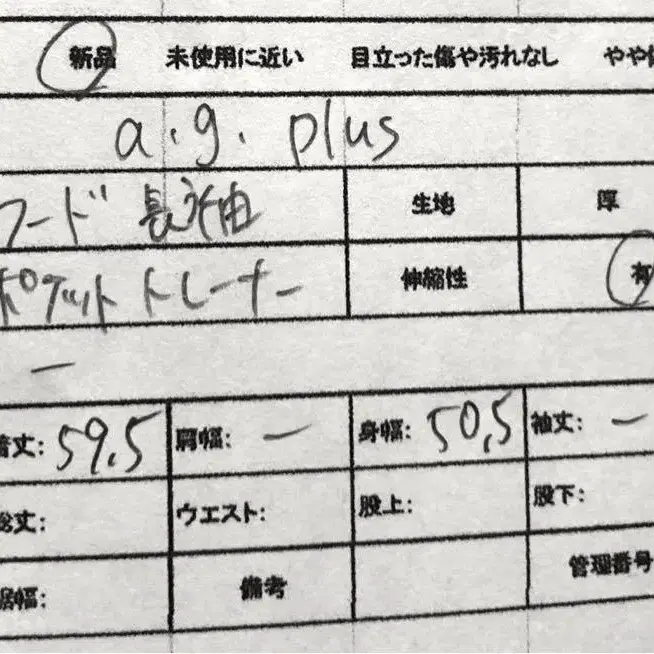 新品 未使用に近い 目立った傷や汚れなし やや
a.g. plus
フード 長袖 生地 厚
ポケット トレーナー 伸縮性 有
ー
着丈: 59.5 肩幅: ー 身幅: 50.5 袖丈: ー
総丈: ウエスト: 股上: 股下:
裾幅: 備考 管理番号